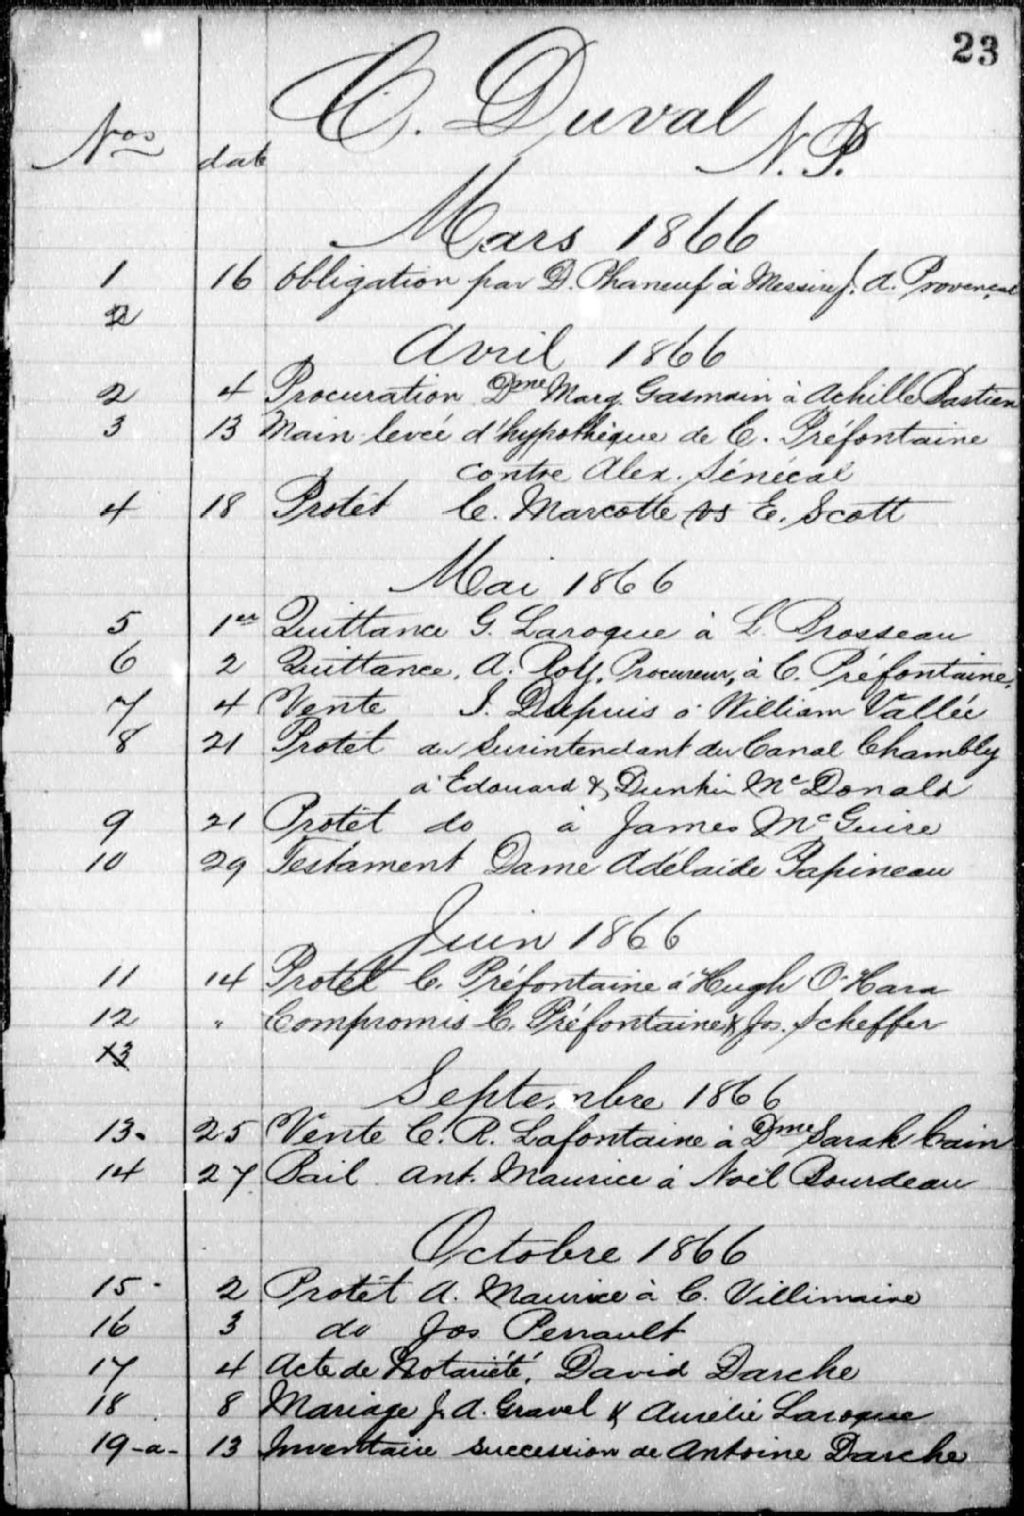 23
C. Duval
N.P.
Nos date
Mars 1866
1 16 Obligation par D. Phaneuf à Messire J. A. Provençal
2
Avril 1866
2 4 Procuration Dme Marg. Gasmain à Achille Bastien
3 13 Main-levée d'hypothèque de C. Préfontaine
contre Alex. Sénécal
4 18 Protêt C. Marcotte vs E. Scott
Mai 1866
5 1er Quittance G. Laroque à L. Brosseau
6 2 Quittance, A. Roy, Procureur, à C. Préfontaine,
7 4 Vente J. Dupuis à William Vallée
8 21 Protêt du Surintendant du Canal Chambly
à Edouard & Dunkin McDonald
9 21 Protêt do à James McGuire
10 29 Testament Dame Adélaide Papineau
Juin 1866
11 14 Protêt C. Préfontaine à Hugh O'Hara
12 " Compromis C. Préfontaine & Jos. Scheffer
13
Septembre 1866
13- 25 Vente C. R. Lafontaine à Dme Sarah Cain
14 27 Bail Ant. Maurice à Noël Bourdeau
Octobre 1866
15- 2 Protêt A. Maurice à C. Villimaire
16 3 do Jos Perrault
17 4 Acte de Notariété, David Darche
18 8 Mariage J. A. Gravel & Aurélie Laroque
19-a- 13 Inventaire succession de Antoine Darche